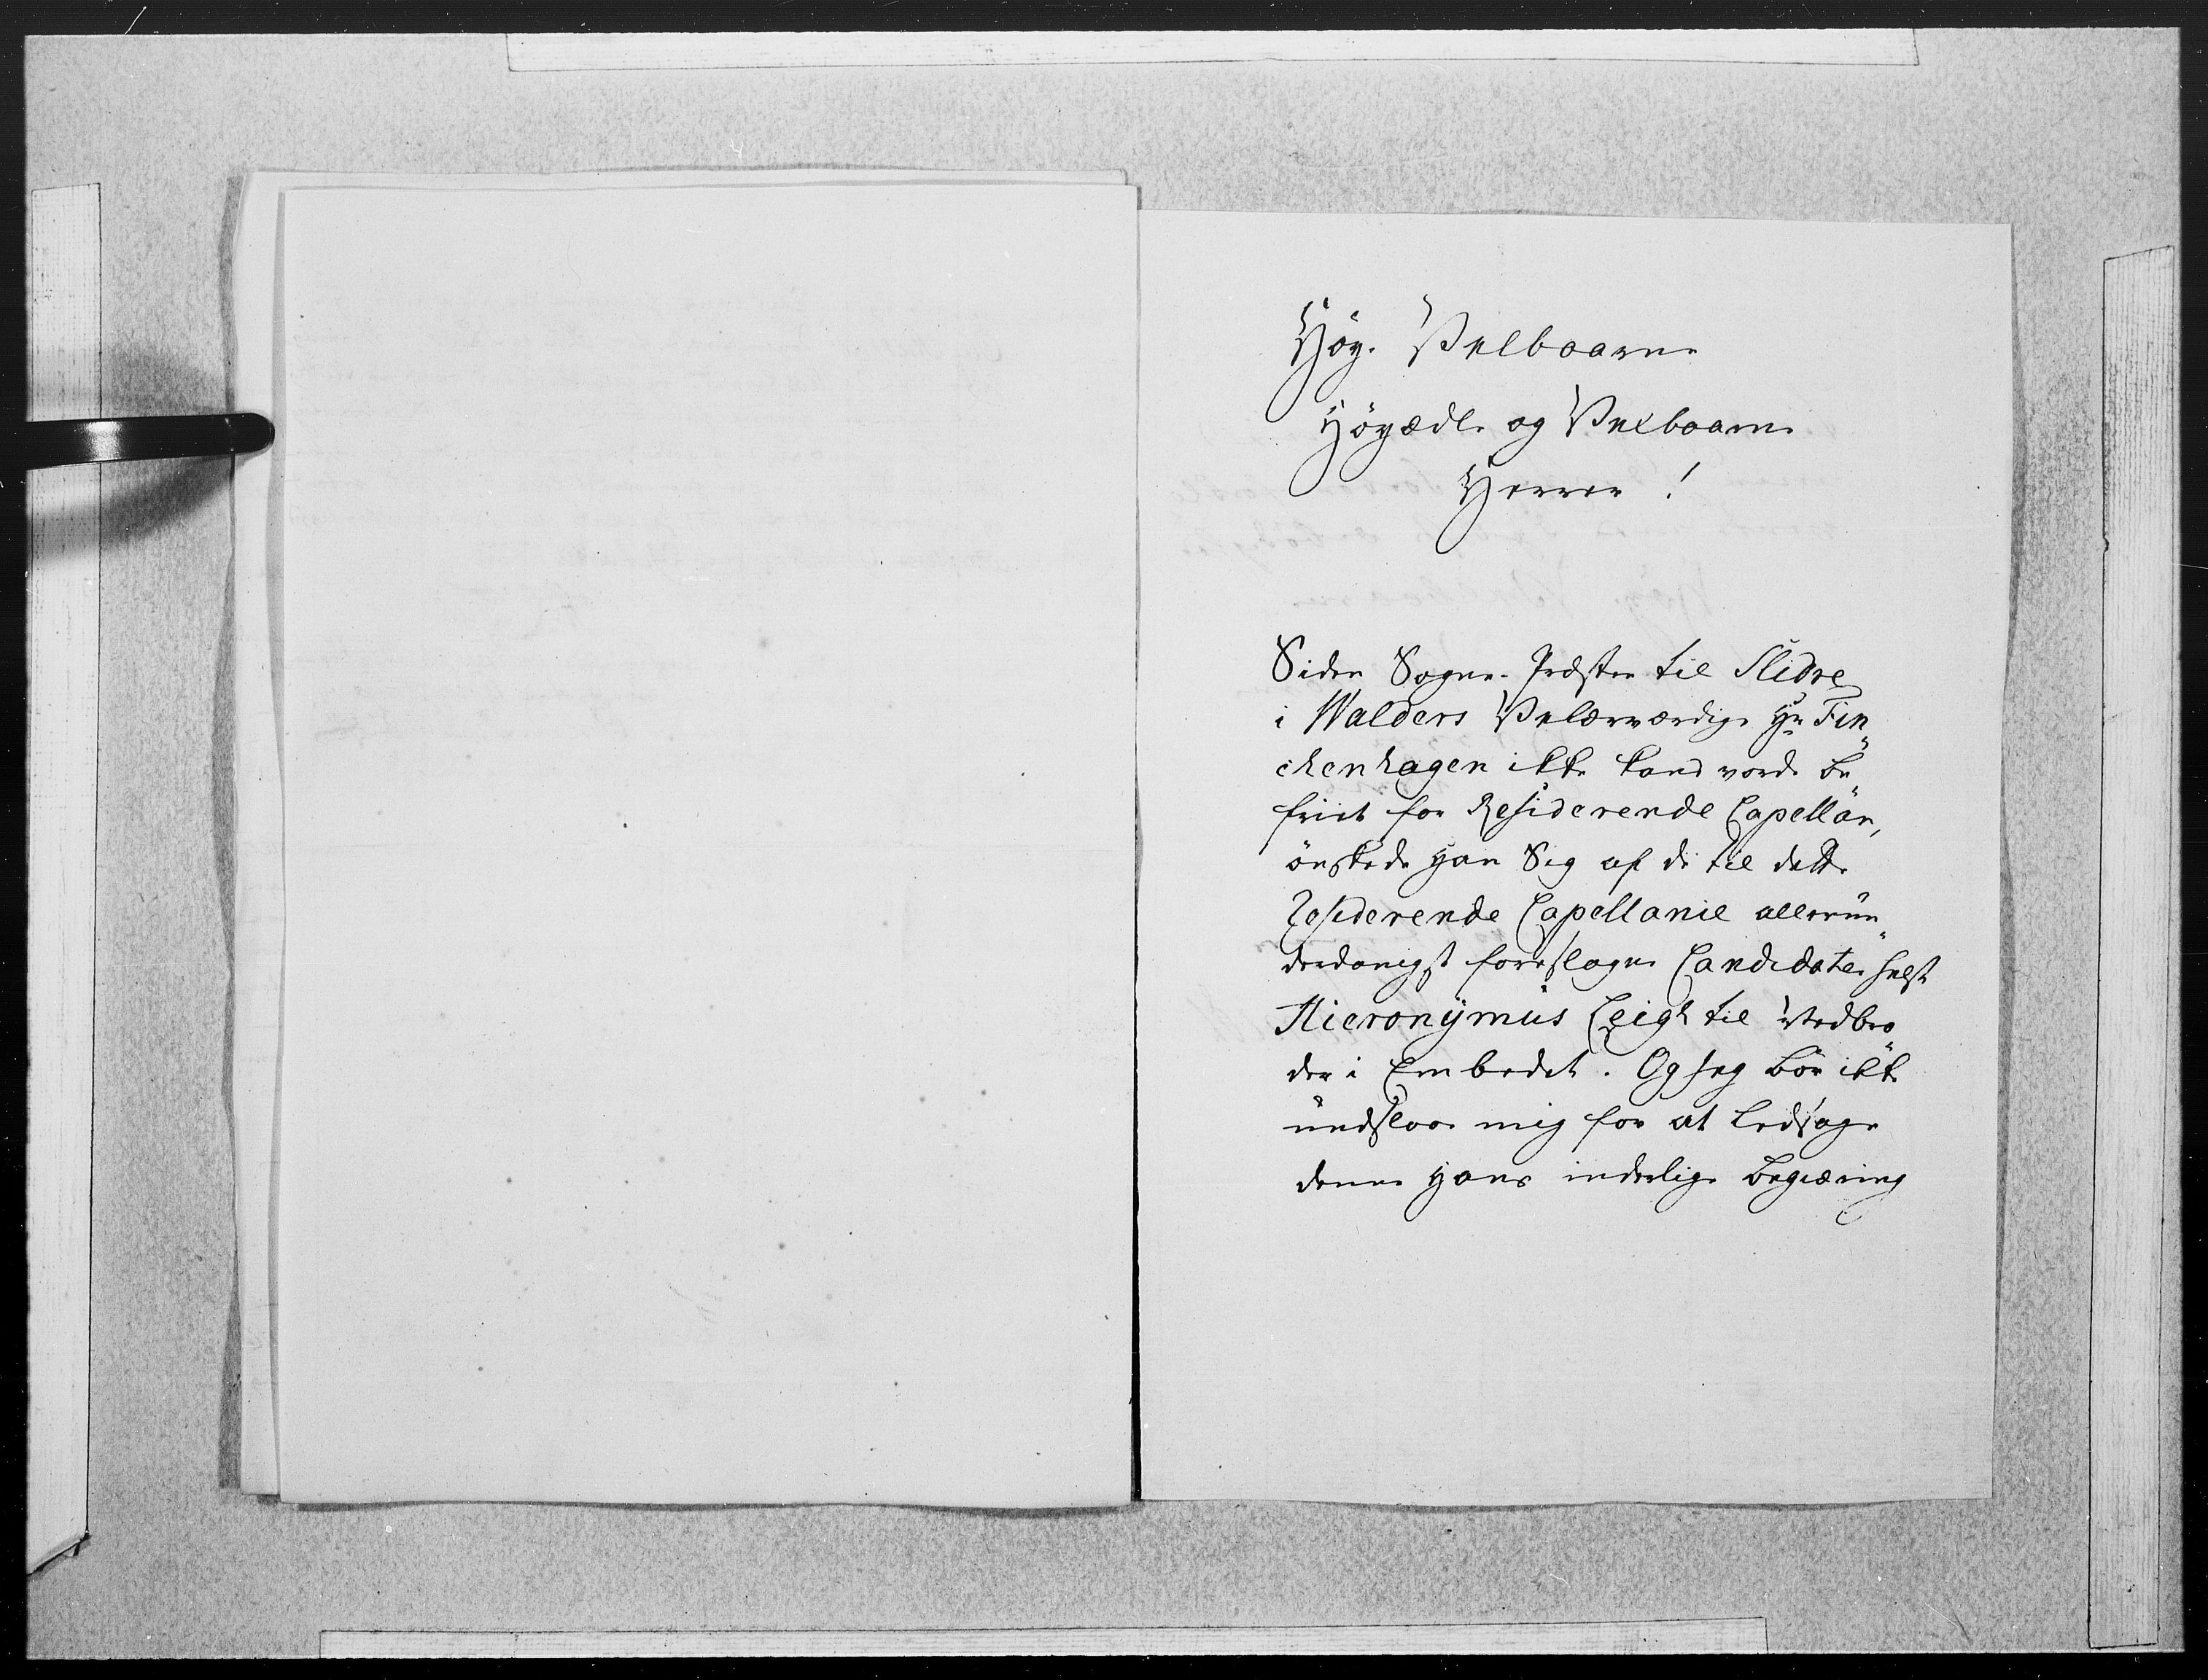 Høy-Velbaarne
Høyædle og Velbaarne
Herrer!
Siden Sogne-Præsten til Slidre
i Walders Velærværdige Hr Fin„
chenhagen ikke kand vorde be„
friet for Residerende Capellan,
ønskede Han Sig af de til dette
Residerende Capellanie allerun„
derdanigst foreslagne Candidater helst
Hieronymus Leigh til Medbro
der i Embedet. Og jeg bör ikke
undslaae mig for at ledsage
denne Hans inderlige Begiæring